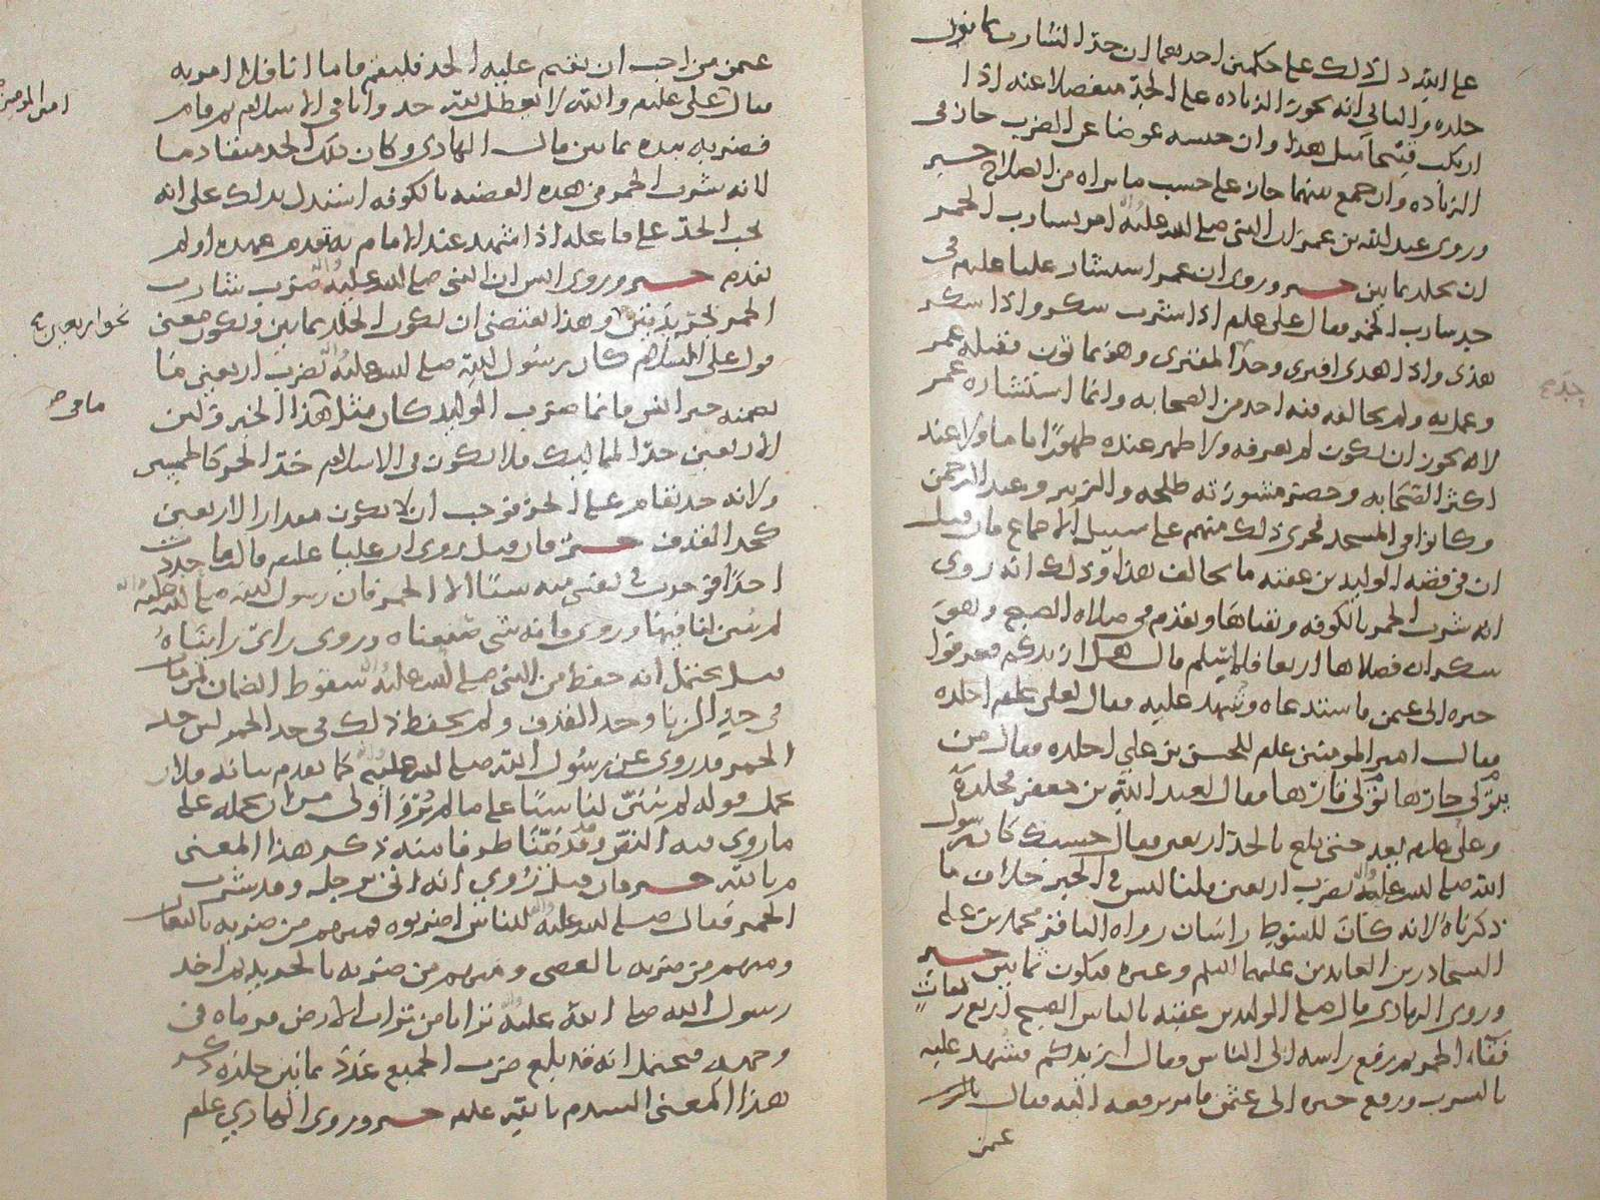 على الله دل ذلك على حكمين احدهما ان حد الشارب ثمانون
جلده والثاني انه يجوز الزياده على الحد منفصلا عنه اذا
ارتكب قبيحا مثل هذا وان حبسه عوضا عن الضرب جاز في
الزياده وان جمع بينهما جاز على حسب ما يراه من الصلاح خبر
وروى عبد الله بن عمر ان النبي صلى الله عليه وآله امر بشارب الخمر
ان يجلد ثمانين خبر وروي ان عمر استشار عليا عليلم في
حد شارب الخمر فقال علي علم اذا شرب سكر واذا سكر
هذى واذا هذى افترى وحد المفتري وهو ثمانون فقبله عمر
وعمل به ولم يخالفه فيه احد من الصحابه وانما استشاره عمر
لانه يجوز ان يكون لم يعرفه ولا ظهر عنده ظهورًا تاما ولا عند
اكثر الصحابه وحضر مشورته طلحه والزبير وعبد الرحمن
وكانوا في المسجد فجرى ذلك منهم على سبيل الاجماع فان قيل
ان في قصه الوليد بن عقبه ما يخالف هذا وذلك انه روى
انه شرب الخمر بالكوفه وتقدم في صلاه الصبح وهو
سكران فصلاها اربعا فلما سلم قال هل ازيدكم فعرفوا
خبره الى عثمن فاستدعاه وشهد عليه فقال لعلي علم اجلده
فقال امير المومنين علم للحسن بن علي اجلده فقال من
تولى حارها تولى قارها فقال لعبد الله بن جعفر فجلده
وعلى علم يعد حتى بلغ بالحد اربعين فقال حسبك كان رسول
الله صلى الله عليه وآله يضرب اربعين قلنا ليس في الخبر خلاف ما
ذكرناه لانه كان للسوط راسان رواه الباقر محمد بن علي
السجاد زين العابدين عليهما السلم وغيره فيكون ثمانين خبر
وروى الهادي قال صلى الوليد بن عقبه بالناس الصبح اربع ركعات
فقاء الخمر ثم رفع راسه الى الناس وقال ازيدكم فشهد عليه
بالشرب ورفع خبره الى عثمن فامر برفعه اليه فقال
عثمن
عثمن من احب ان يقيم عليه الحد فليقم فاما انا فلا امر به
فقال علي عليلم والله لا يعطل لله حد وانا في الاسلام ثم قام
امير المومنين
فضربه بيده ثمانين قال الهادي وكان ذلك الحد متقادما
لانه شرب الخمر في هذه القضيه بالكوفه استدل بذلك على انه
يجب الحد على فاعله اذا شهد عند الامام به تقدم عهده او لم
يقدم خبر وروى انس ان النبي صلى الله عليه وآله ضرب شارب
الخمر بجريدتين وهذا يقتضي ان يكون الجلد ثمانين ويكون معنى
نحو اربعين
قول علي السلام كان رسول الله صلى الله عليه وآله يضرب اربعين ما
تضمنه خبر انس فانما ضرب الوليد كان مثل هذا الخبر ولئن
ما في
الاربعين حد المماليك فلا يكون في الاسلام حد الحر كالعبيد
ولانه حد يقام على الحر فوجب ان لا يكون مقدار الاربعين
كحد القذف خبر فان قيل روى ان عليا علم قال ما حددت
احدًا فوجدت في نفسي منه شيئا الا الخمر فان رسول الله صلى الله عليه وآله
لم يسن لنا فيها وروى فانه شي صنعناه وروى راي رايناه
قيل يحتمل انه حفظ من النبي صلى الله عليه وآله سقوط الضمان لمن مات
في حد الزنا وحد القذف ولم يحفظ ذلك في حد الخمر لان حد
الخمر قد روى عن رسول الله صلى الله عليه وآله كما تقدم بيانه فلان
حمل قوله لم يسن لنا شيئا على ما لم اولى من ان يحمله على
ما روى فيه النص وقد قدمنا طرفا منه ذكر هذا المعنى
م بالله خبر فان قيل روي انه اتى برجل وقد شرب
الخمر فقال صلى الله عليه وآله للناس اضربوه فمنهم من ضربه بالنعال
ومنهم من ضربه بالعصى ومنهم من ضربه بالجريد ثم اخذ
رسول الله صلى الله عليه وآله ترابا من تراب الارض فرماه في
وجهه فيحتمل انه قد بلغ ضرب الجميع عدد ثمانين جلده ذكر
هذا المعنى السيدم بالله علم خبر وروى الهادي علم